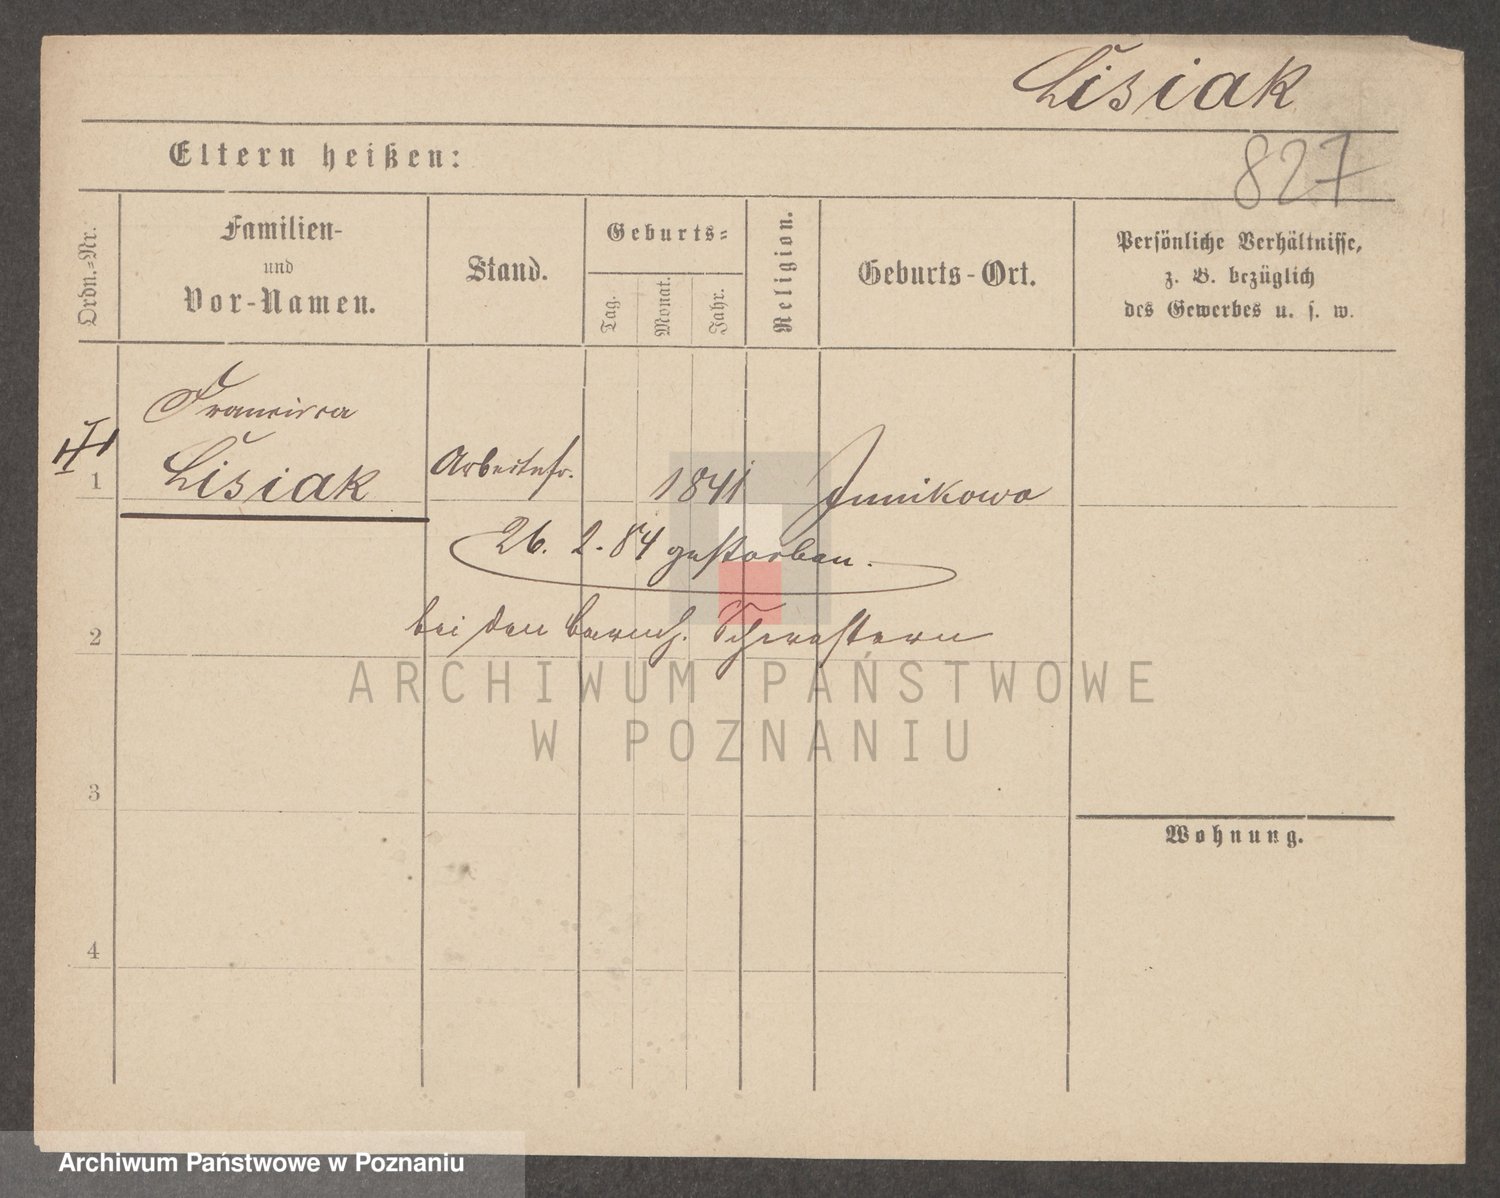 Lisiak
Eltern heißen:
827
Ordn.=Nr.
Familien-
und
Vor-Namen.
Stand.
Geburts=
Tag.
Monat.
Jahr.
Religion.
Geburts-Ort.
Persönliche Verhältnisse,
z. B. bezüglich
des Gewerbes u. s. w.
Francisca
1 Lisiak Arbeitsfr. 1841 Junikowo
26. 2. 84 gestorben.
2 bei den barmh. Schwestern
ARCHIWUM PAŃSTWOWE
W POZNANIU
3
Wohnung.
4
Archiwum Państwowe w Poznaniu